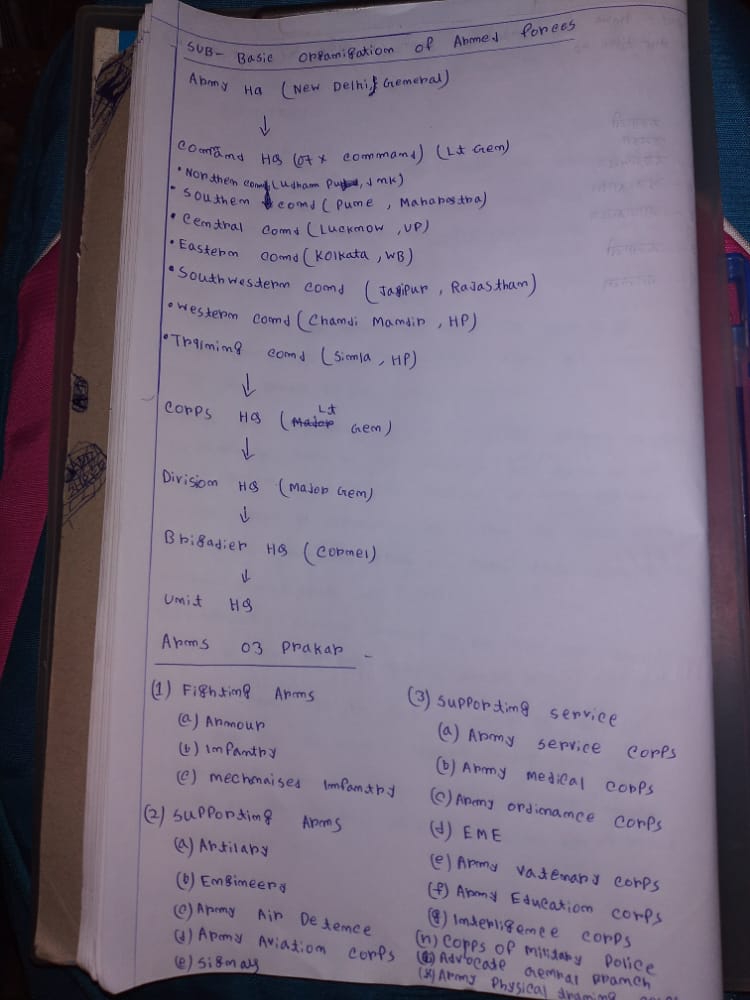 SUB- Basic Organisation of Armed Forces
Army HQ (New Delhi, General)
↓
Command HQ (07 x command) (Lt Gen)
• Northen comd (Udham Pur, JMK)
• Southen comd (Pune, Maharostra)
• Central comd (Lucknow, UP)
• Eastern comd (Kolkata, WB)
• Southwestern comd (Jaipur, Rajasthan)
• Western comd (Chandi Mandir, HP)
• Training comd (Simla, HP)
↓
Corps HQ (Lt Gen)
↓
Division HQ (Major Gem)
↓
Brigadier HQ (Cornel)
↓
Unit HQ
Arms 03 Prakar -
(1) Fighting Arms
(a) Armour
(b) Infantry
(c) mechnaised Infantry
(2) Supporting Arms
(a) Artilary
(b) Engineery
(c) Army Air Defence
(d) Army Aviation Corps
(e) Signals
(3) Supporting service
(a) Army service Corps
(b) Army medical Corps
(c) Army ordinance Corps
(d) EME
(e) Army vatenary Corps
(f) Army Education Corps
(g) Interligence Corps
(h) Corps of military Police
Advocate General Branch
(k) Army Physical training